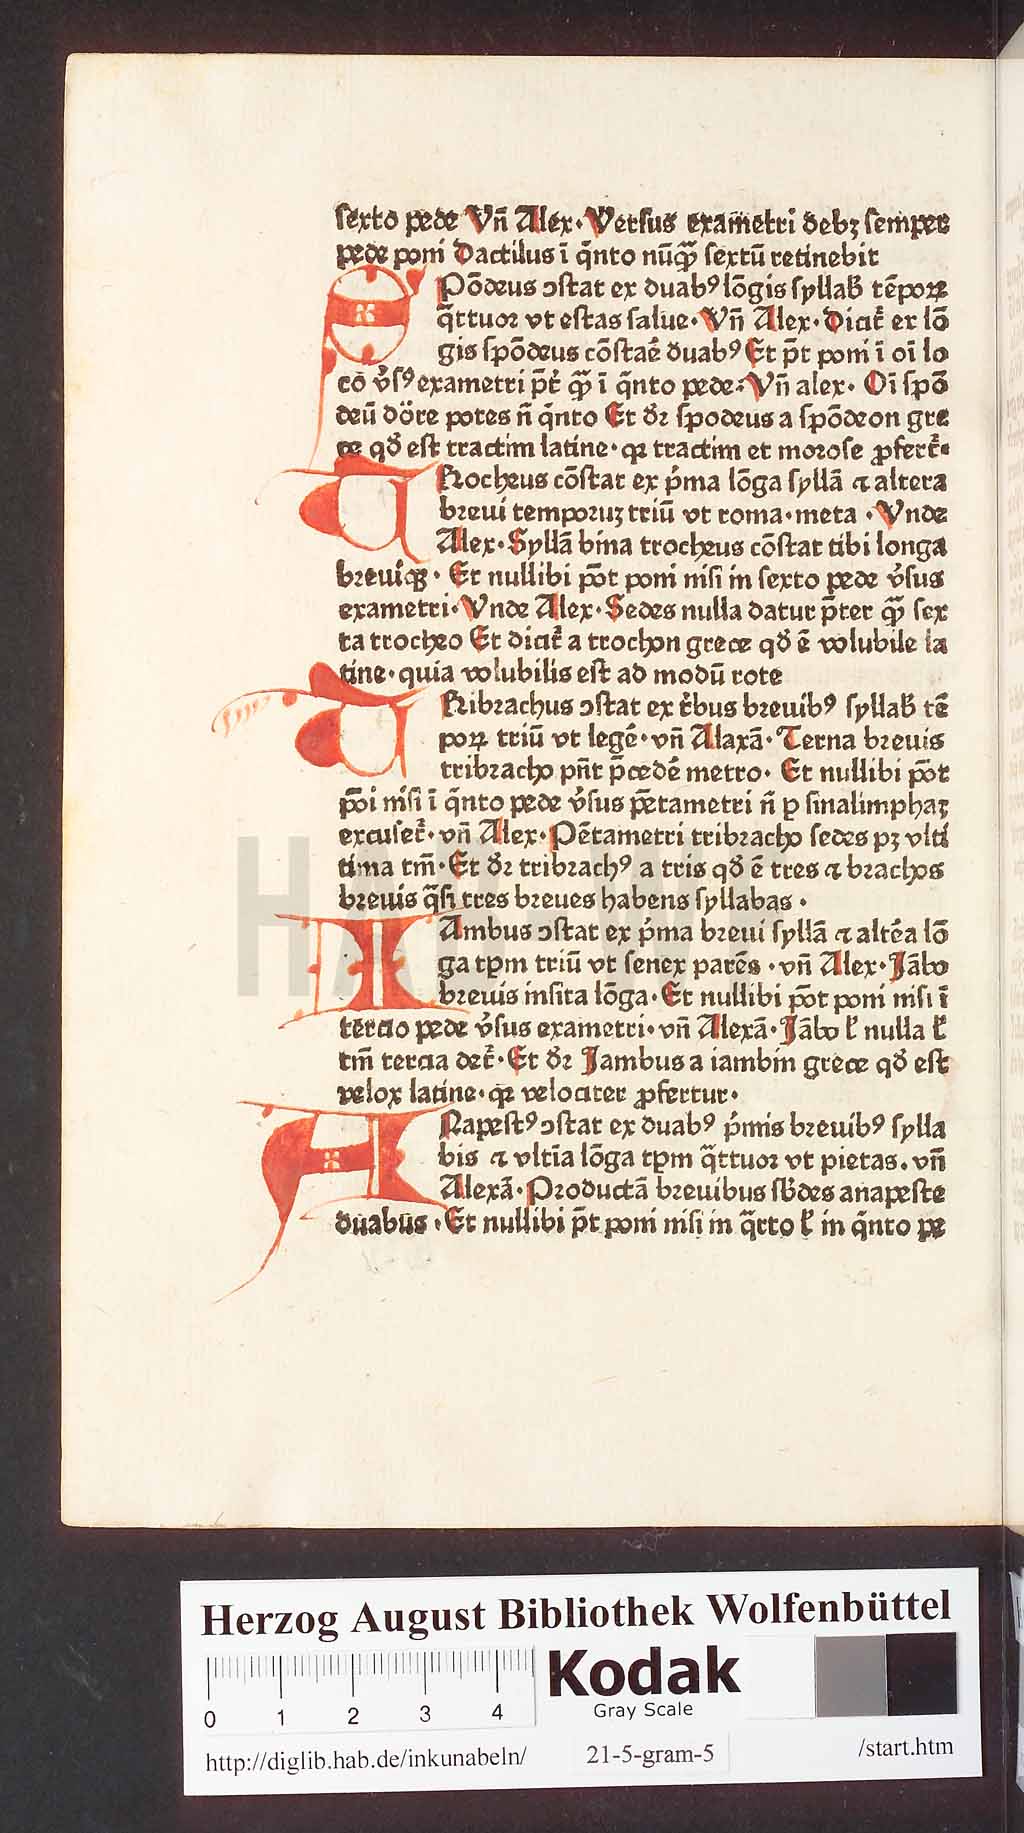 sexto pede Vñ Alex. Versus exametri debꝫ semper
pede poni Dactilus ī q̄nto nūqꝫ sextū retinebit
SPōdeus ↄstat ex duabꝰ lōgis syllab̄ tēpoꝝ
q̄ttuor vt estas salue. Vñ Alex. Dicit᷑ ex lō
gis spōdeus cōstaē duabꝰ Et p̄t poni ī oī lo
co v̉sꝰ exametri p̄t᷑ qꝫ ī q̄nto pede. Vñ alex. Oī spō
deū dōre potes ñ q̄nto Et dr̄ spodeus a spōdeon gre
ce qd̄ est tractim latine. qꝛ tractim et morose ꝓfert᷑.
TRocheus cōstat ex p̓ma lōga syllā ⁊ altera
breui temporuꝫ triū vt roma. meta. Vnde
Alex. Syllā bina trocheus cōstat tibi longa
breuiqꝫ. Et nullibi pōt poni nisi in sexto pede v̉sus
exametri. Vnde Alex. Sedes nulla datur p̄ter qꝫ sex
ta trocheo Et dicit᷑ a trochon grece qd̄ ē volubile la
tine. quia volubilis est ad modū rote
TRibrachus ↄstat ex tͥbus breuibꝰ syllab̄ tē
poꝝ triū vt legē. vñ Alaxā. Terna breuis
tribracho pn̄t p̄cedē metro. Et nullibi pōt
pōi nisi ī q̄nto pede v̉sus pētametri ñ ꝑ sinalimphaꝫ
excuset᷑. vñ Alex. Pētametri tribracho sedes pꝫ vlti
tima tm̄. Et dr̄ tribrachꝰ a tris qd̄ ē tres ⁊ brachos
breuis q̄si tres breues habens syllabas.
IAmbus ↄstat ex p̓ma breui syllā ⁊ altēa lō
ga tꝑm triū vt senex parēs. vñ Alex. Jābo
breuis insita lōga. Et nullibi pōt poni nisi ī
tercio pede v̉sus exametri. vñ Alexā. Jābo ł nulla ł
tm̄ tercia det᷑. Et dr̄ Jambus a iambin grece qd̄ est
velox latine. qꝛ velociter ꝓfertur.
ANapestꝰ ↄstat ex duabꝰ p̓mis breuibꝰ sylla
bis ⁊ vltīa lōga tꝑm q̄ttuor vt pietas. vñ
Alexā. Productā breuibus sb̄des anapeste
duabus. Et nullibi p̄t poni nisi in q̄rto ł in q̄nto pe
HAB WF
Herzog August Bibliothek Wolfenbüttel
0 1 2 3 4
Kodak
Gray Scale
http://diglib.hab.de/inkunabeln/ 21-5-gram-5 /start.htm